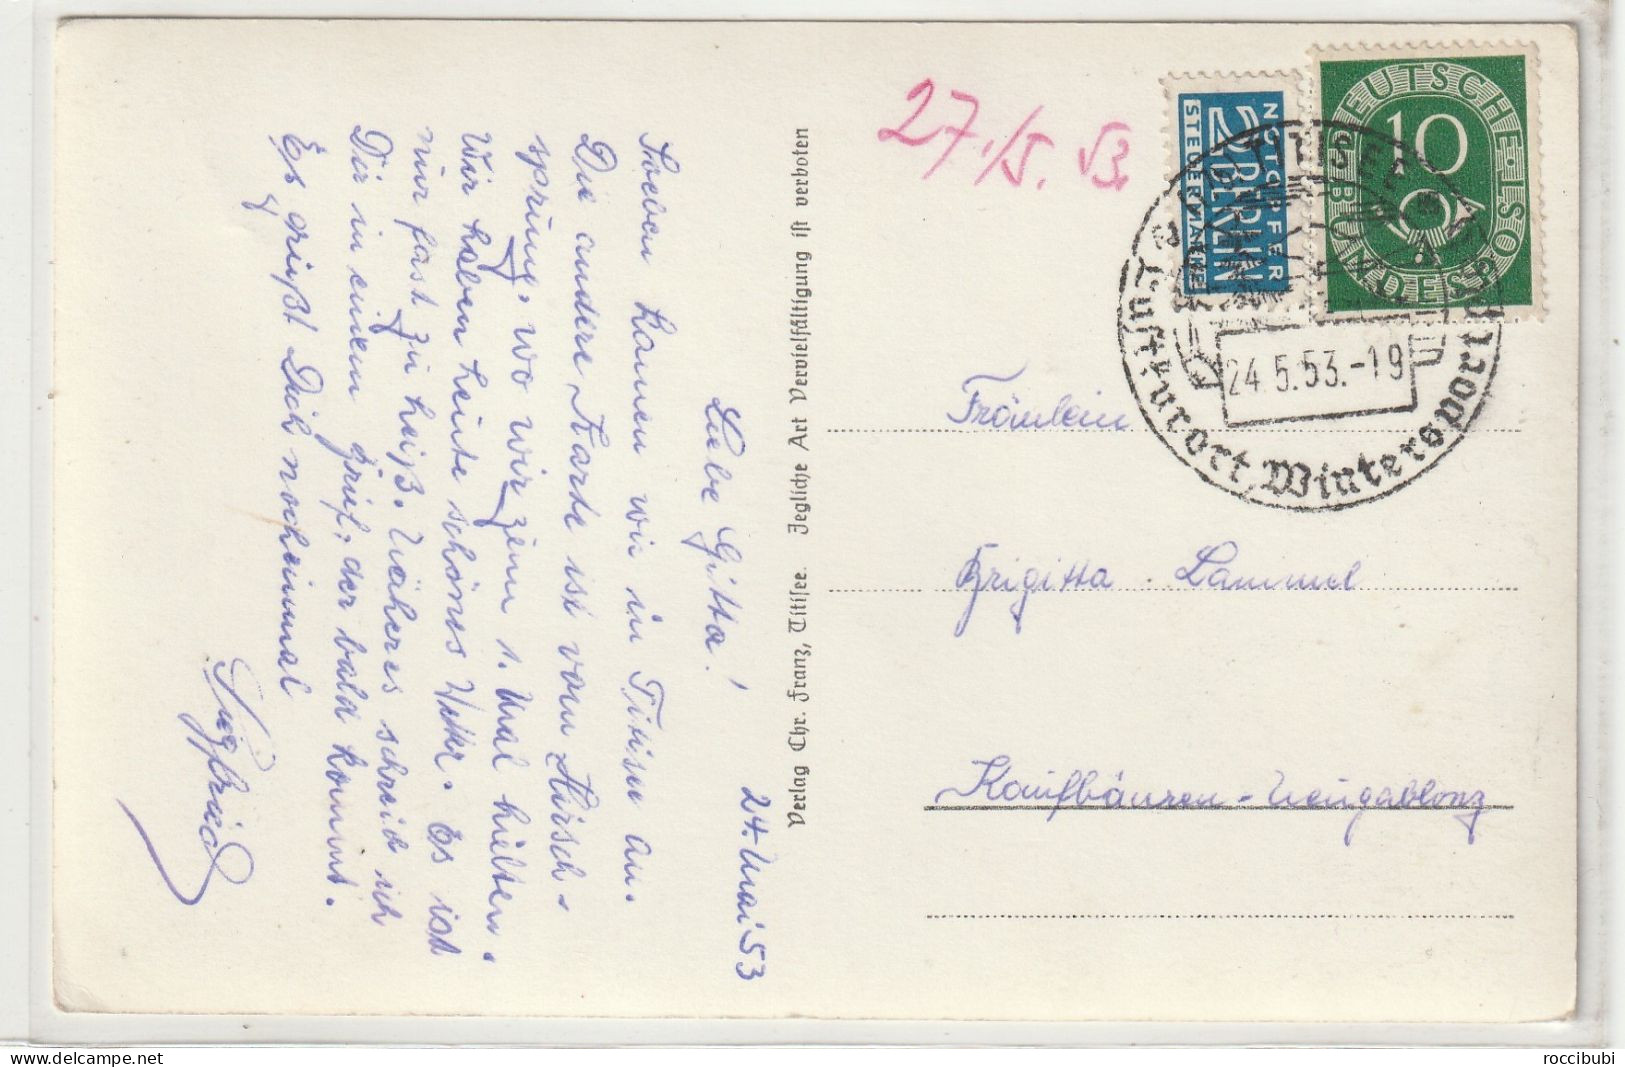 24. Mai 53
Liebe Gitta!
Soeben kamen wir in Titisee an.
Die andere Karte ist vom Hirsch-
sprung, wo wir zum 1. Mal hielten.
Wir haben heute schönes Wetter. Es ist
nur fast zu heiß. Näheres schreib ich
Dir in einem Brief, der bald kommt.
Es grüßt Dich nocheinmal
Siegfried
Verlag Chr. Franz, Titisee. Jegliche Art Vervielfältigung ist verboten
27./5. 53.
NOTOPFER
2 BERLIN
STEUERMARKE
DEUTSCHE BUNDESPOST
10
TITISEE
24.5.53.-19
Luftkurort, Wintersportplatz
Fräulein
Brigitta Lammel
Kaufbäuren-Neugablonz
roccibubi